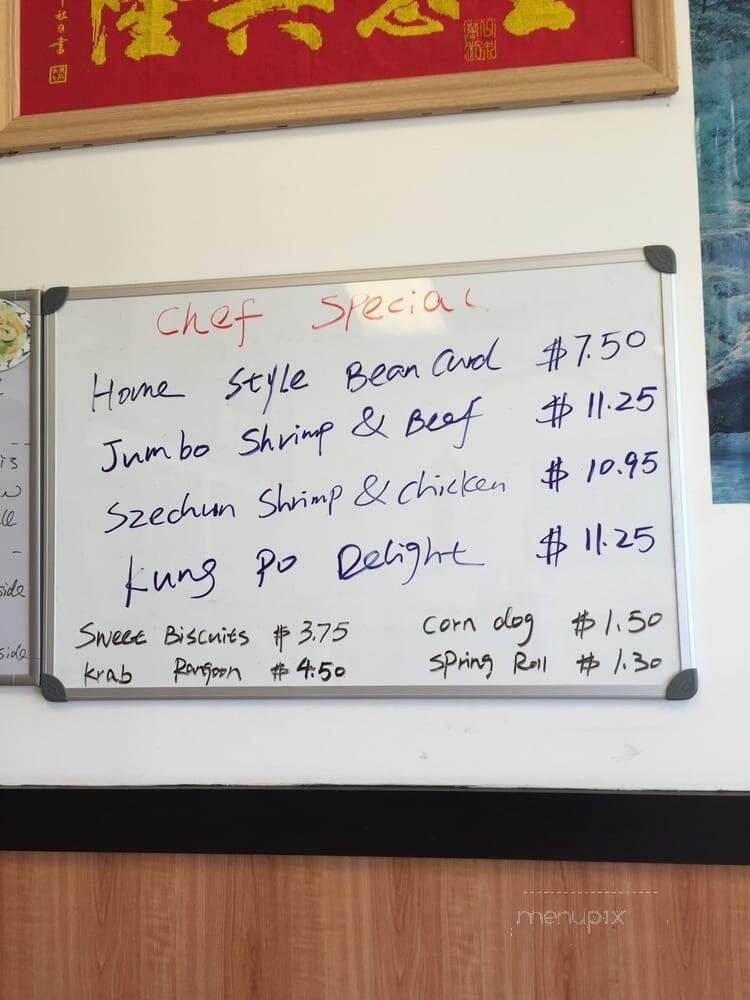 隆興
Chef Special
Home Style Bean Curd $7.50
Jumbo Shrimp & Beef $11.25
Szechun Shrimp & Chicken $10.95
Kung Po Delight $11.25
Sweet Biscuits $3.75 Corn dog $1.50
Krab Rangoon $4.50 Spring Roll $1.30
side
side
menupix